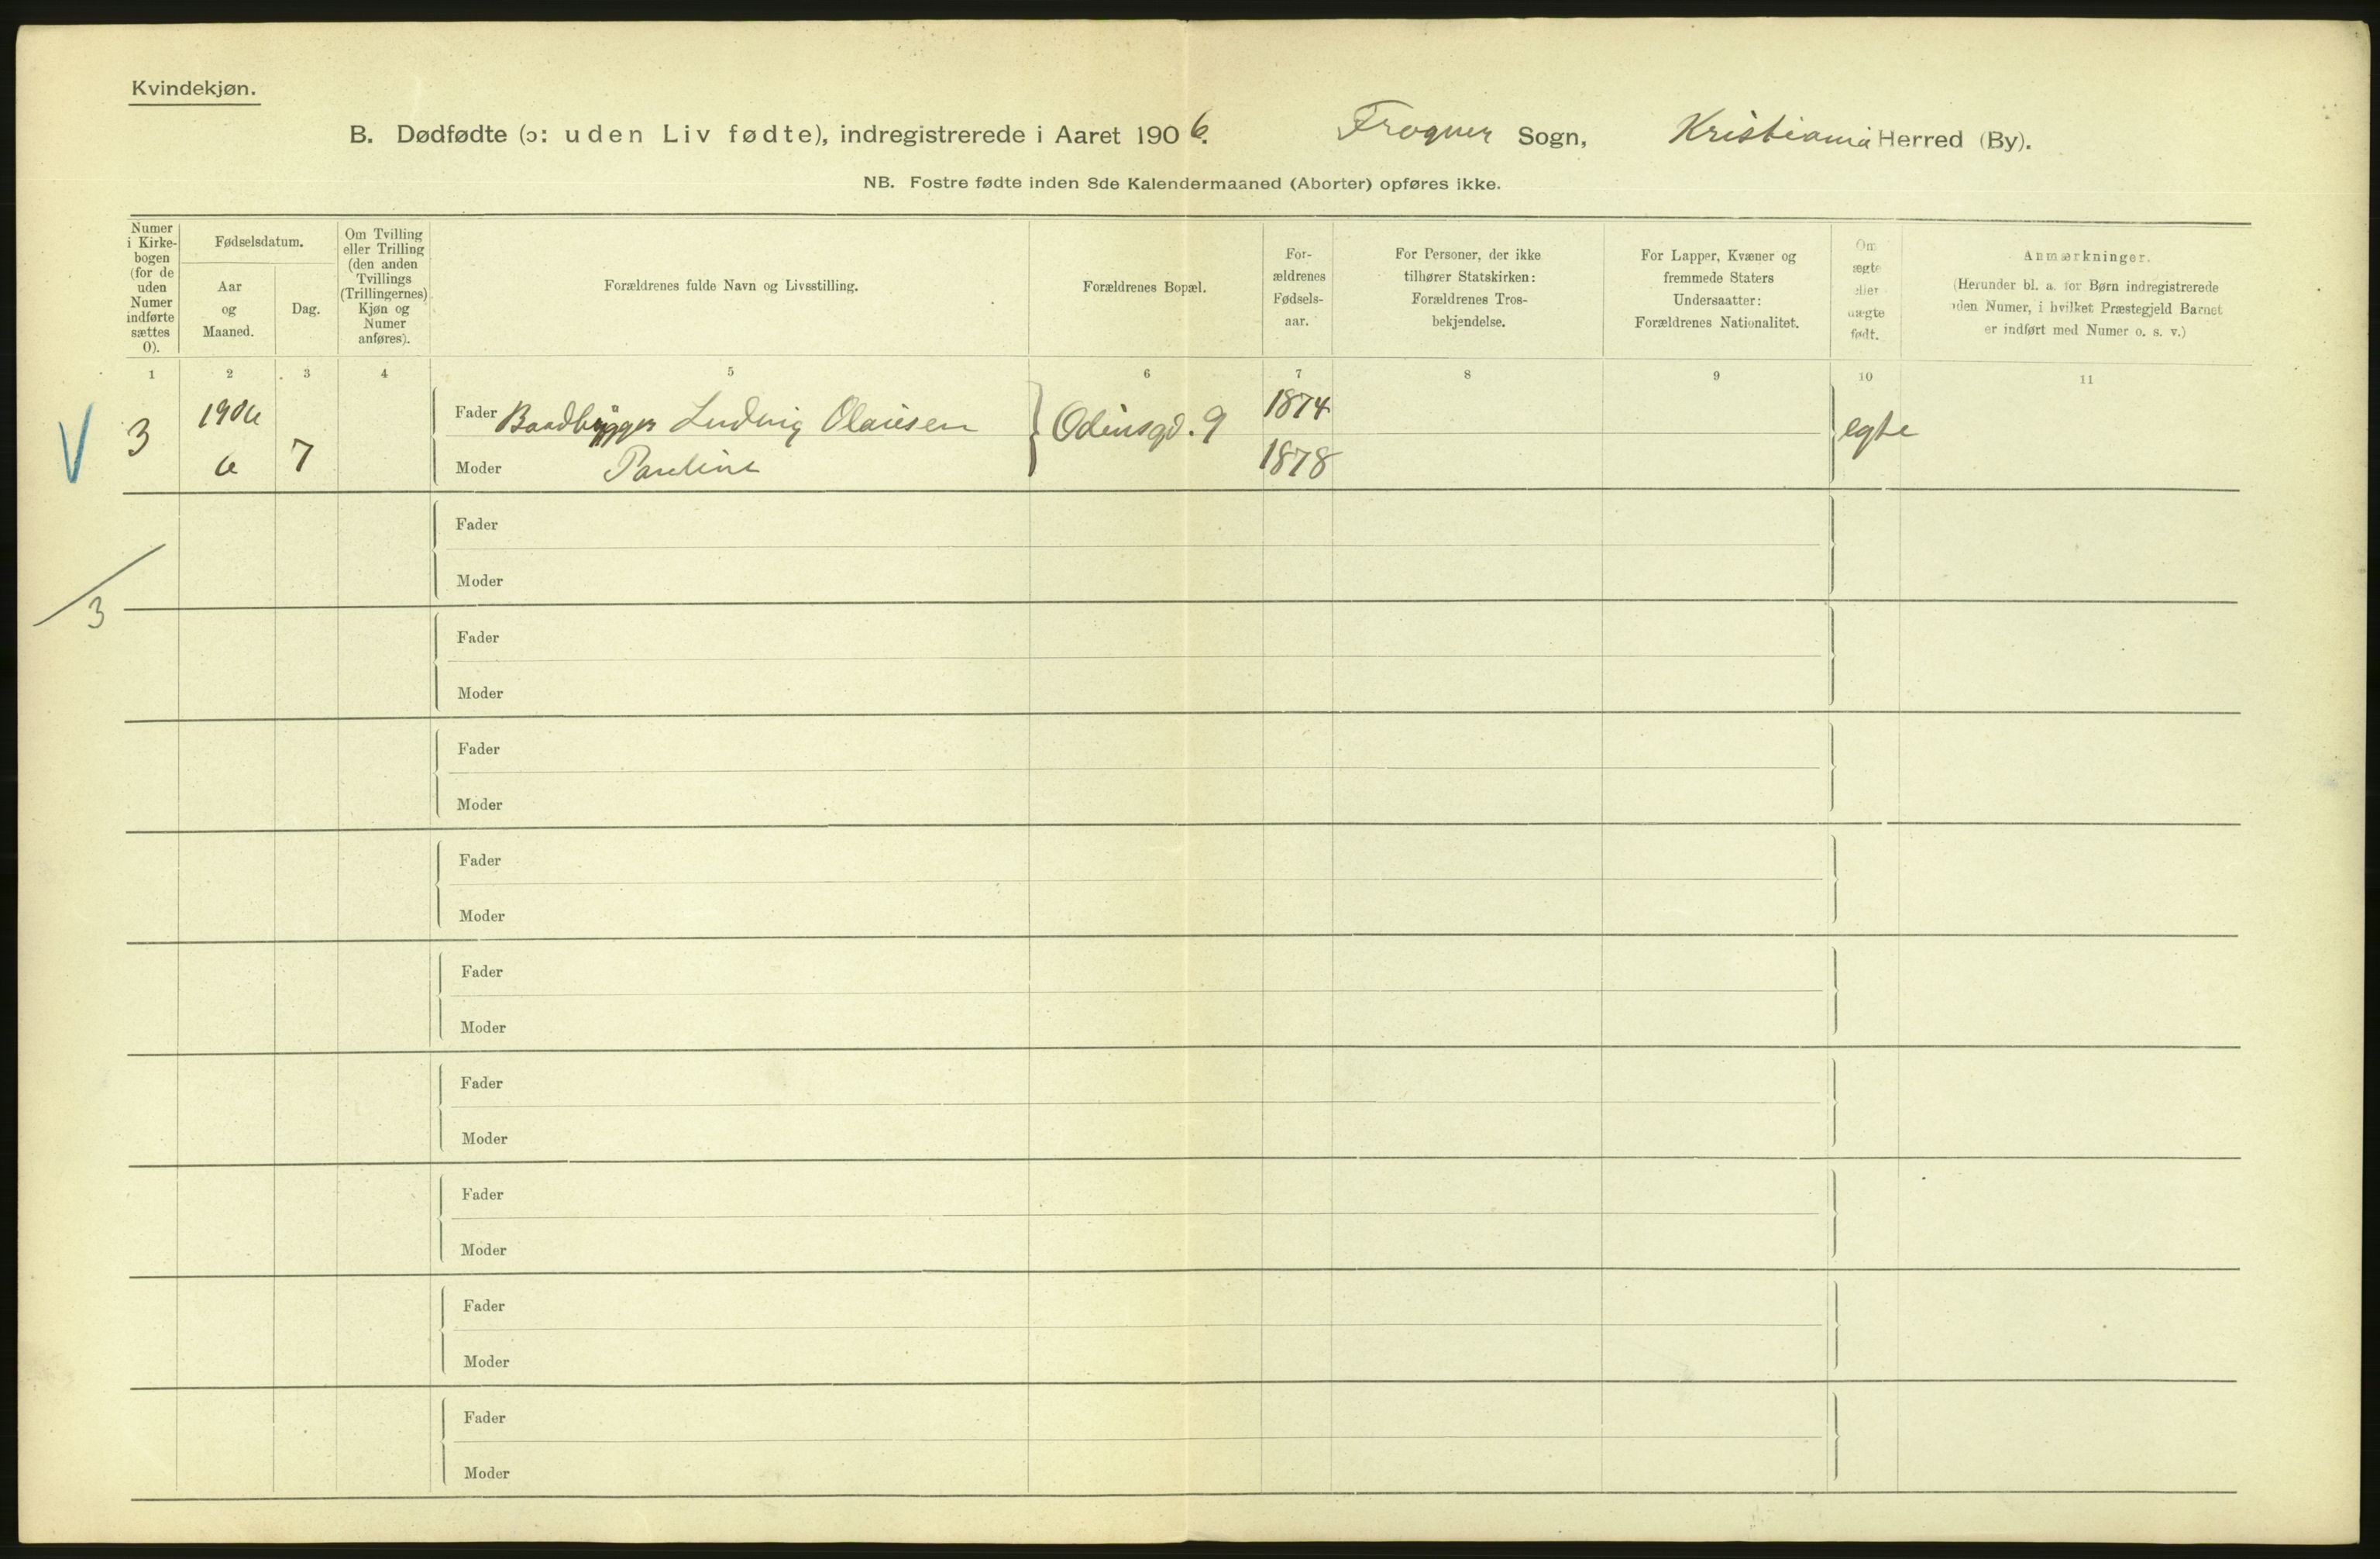 Kvindekjøn.
B. Dødfødte (ɔ: uden Liv fødte), indregistrerede i Aaret 1906. Frogner Sogn, Kristiania Herred (By).
NB. Fostre fødte inden 8de Kalendermaaned (Aborter) opføres ikke.
Numer
i Kirke-
bogen
(for de
uden
Numer
indførte
sættes
0).
Fødselsdatum.
Aar
og
Maaned.
Dag.
Om Tvilling
eller Trilling
(den anden
Tvillings
(Trillingernes)
Kjøn og
Numer
anføres).
Forældrenes fulde Navn og Livsstilling.
Forældrenes Bopæl.
For-
ældrenes
Fødsels-
aar.
For Personer, der ikke
tilhører Statskirken:
Forældrenes Tros-
bekjendelse.
For Lapper, Kvæner og
fremmede Staters
Undersaatter:
Forældrenes Nationalitet.
Om
ægte
eller
uægte
født.
Anmærkninger.
(Herunder bl. a. for Børn indregistrerede
uden Numer, i hvilket Præstegjeld Barnet
er indført med Numer o. s. v.)
1 2 3 4 5 6 7 8 9 10 11
V 3 1906 Fader Baadbygger Ludvig Olausen Odinsgd. 9 1874 egte
6 7 Moder Pauline 1878
Fader
Moder
3
Fader
Moder
Fader
Moder
Fader
Moder
Fader
Moder
Fader
Moder
Fader
Moder
Fader
Moder
Fader
Moder